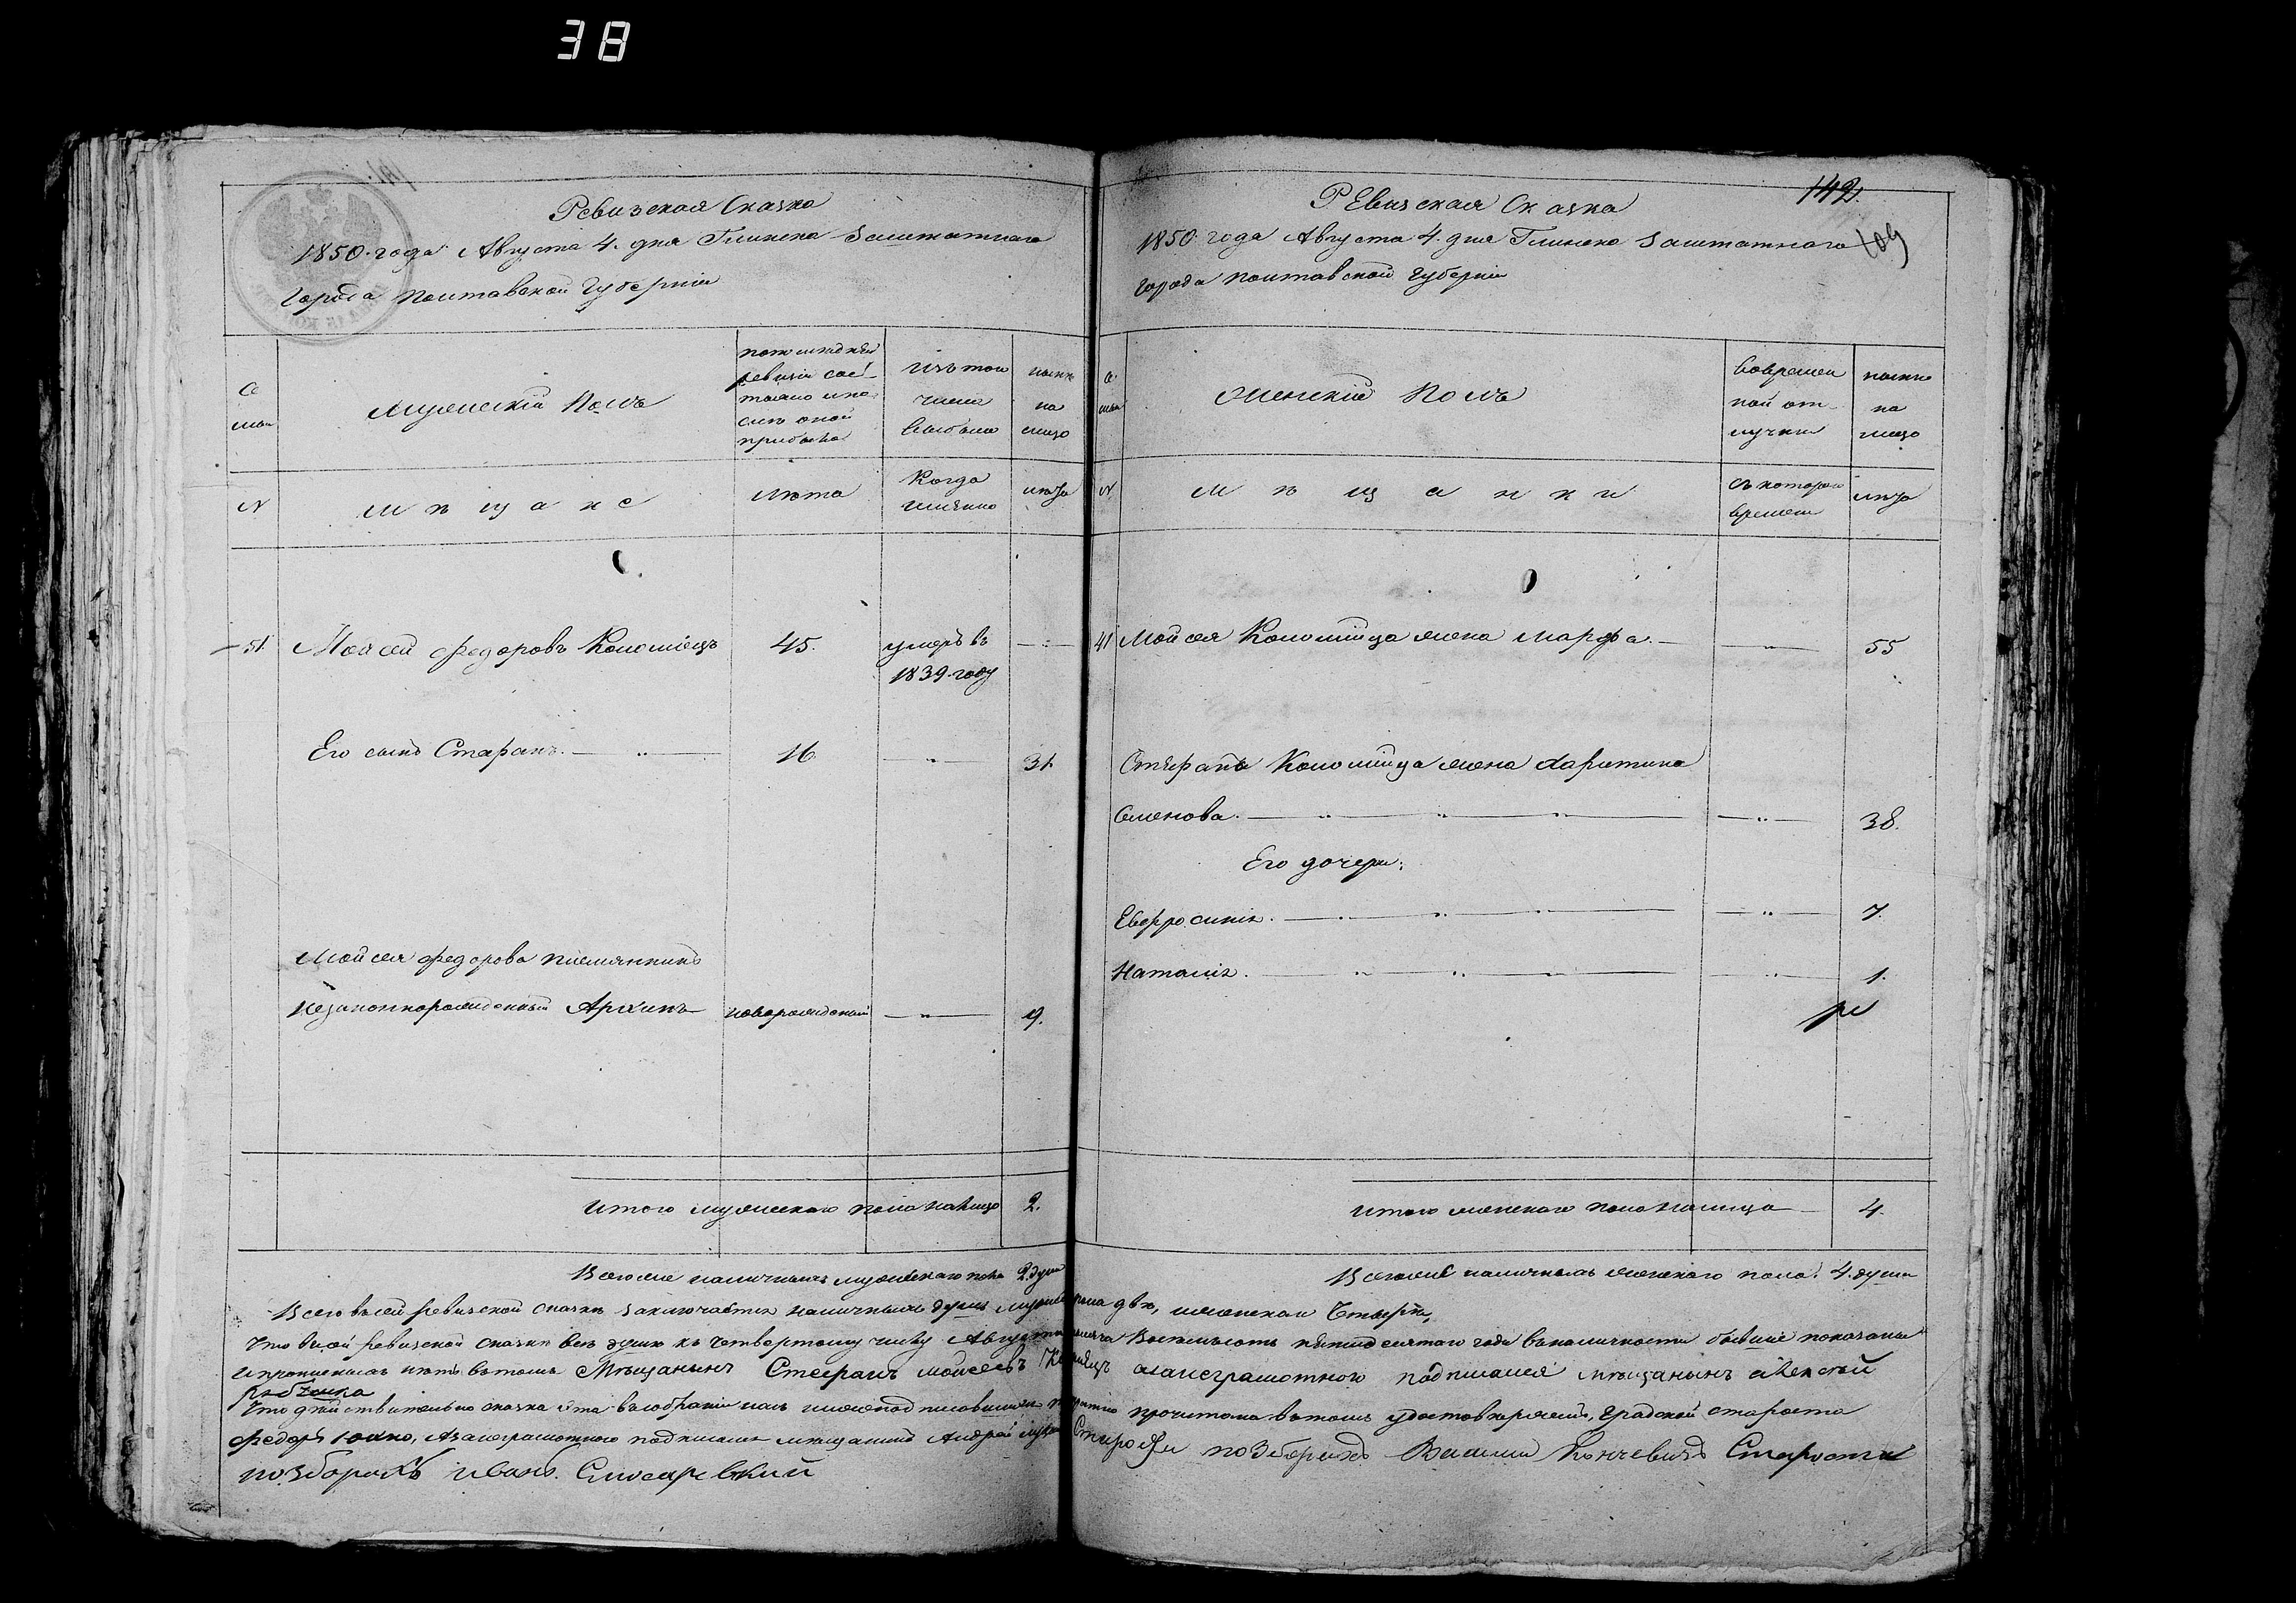 38
Ревизская Сказка
1850. года Августа 4. дня Глинска Заштатнаго
города Полтавской Губернiи
Се
мьи
Мужескiй Полъ
по последней
ревизiи сос
тояло и по
слѣ оной
прибыло
Изъ того
числа
выбыло
нынѣ
на
лицо
N
Мѣщане
Лѣта
Когда
именно
лѣта
51. Мойсей Федоровъ Коломiецъ 45. умеръ въ
1839. году
Его сынъ Стефанъ. 16. 31.
Мойсея Федорова племянникъ
незаконнорожденный Архипъ новорожденный 9.
Итого мужескаго пола налицо 2.
Всего же наличныхъ мужескаго пола 2. души
142.
109
РЕвизская Сказка
1850 года Августа 4. дня Глинска Заштатнаго
города Полтавской Губернiи
Се
мьи
Женскiй Полъ
Вовремен
ной от
лучки
нынѣ
на
лицо
N
Мѣщанки
Съ котораго
времени
лѣта
41 Мойсея Коломiйца жена Марфа. 55
Стефана Коломiйца жена Харитина
Семенова. 38.
Его дочери:
Евфросинiя. 7.
Наталiя. 1.
Итого женскаго пола налицо 4.
Всегоже наличныхъ женскаго пола. 4. души
Всего въ сей ревизской сказкѣ заключается наличныхъ душъ мужеска пола двѣ, женска Четыре,
Что въ сей ревизской сказкѣ всѣ души къ четвертому числу Августа месяца Восемьсотъ пятидесятаго года въ наличности бывшiе показаны
и прописныхъ нѣтъ въ томъ Мѣщанинъ Стефанъ Мойсеевъ Коломiецъ а за неграмотнаго подписался мѣщанинъ Алексѣй
Рябченко
Что дѣйствительно сказка эта въ собранiи прочитана въ томъ удостовѣряемъ, Градской староста
Федоръ а за неграмотнаго подписался мѣщанинъ Андрей Староста по Зборахъ Василiй Кончевичъ Староста
по Зборахъ Иванъ Слюсаревскiй